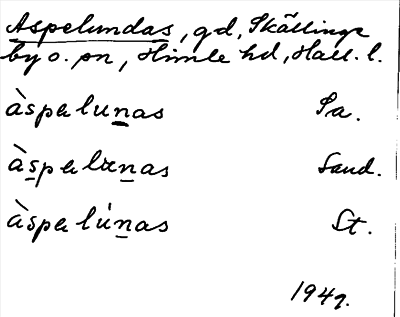 Aspelundas, gd, Skällinge
by o. sn, Himle hd, Hall. l.
àspalunas Sa.
àspalunas Sand.
àspalúnas St.
1947.